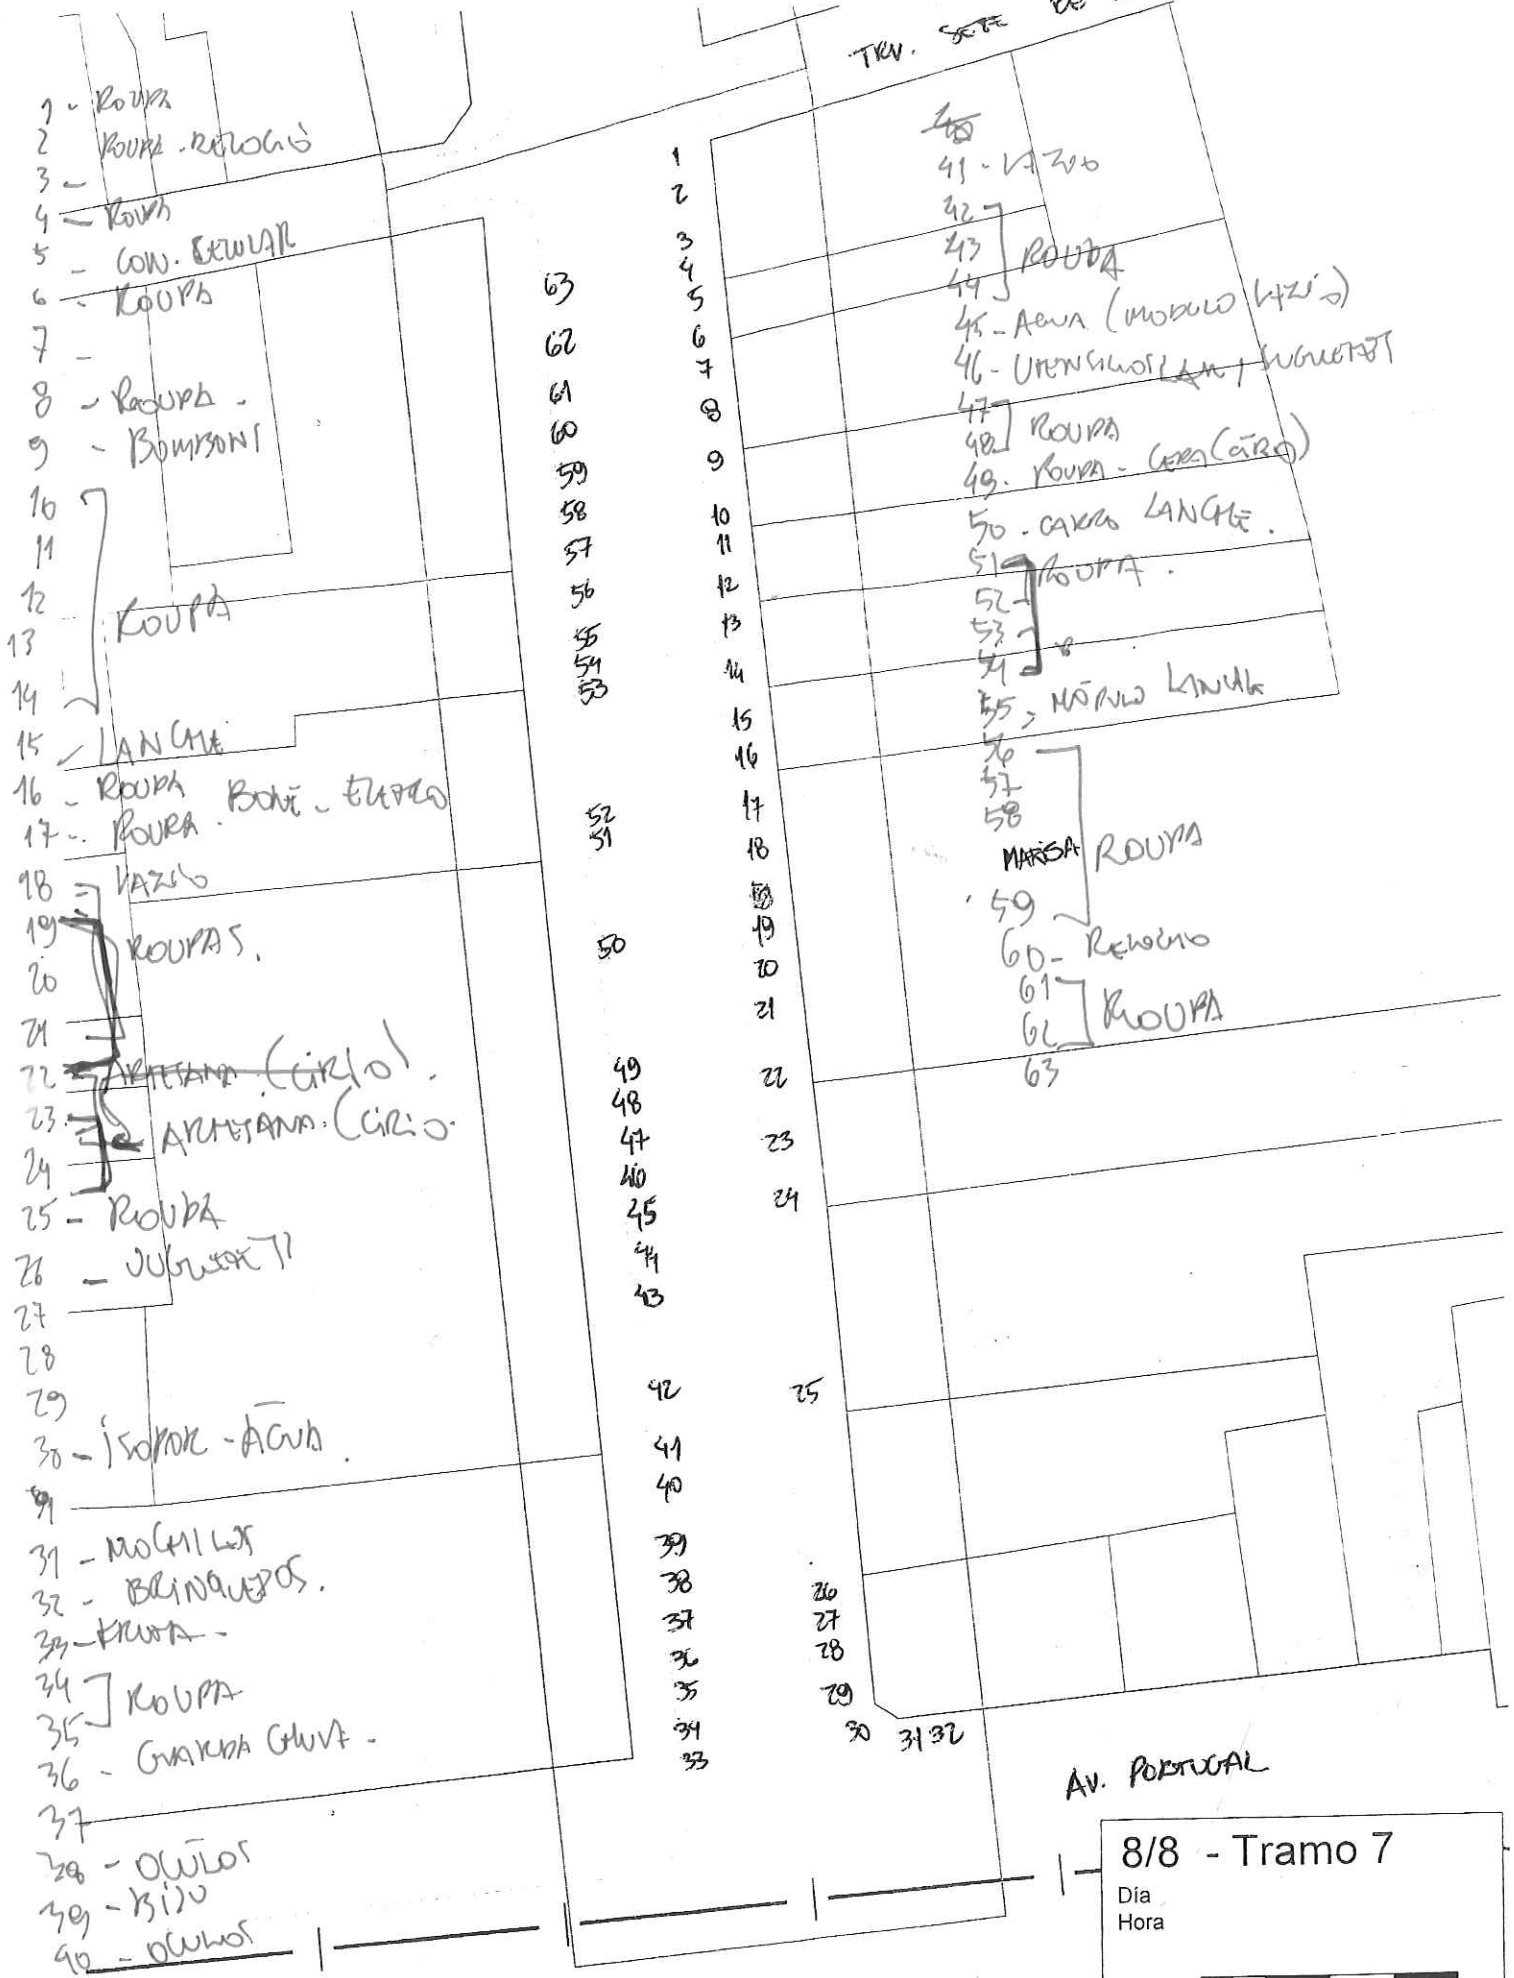 TRV. SETE DE
1 - ROUPA
2 ROUPA - RELOGIO
3 -
4 - ROUPA
5 - CON. CELULAR
6 - ROUPA
7 -
8 - ROUPA -
9 - BOMBONS
10
11
12
ROUPA
13
14
15 - LANCHE
16 - ROUPA
17 - ROUPA - BONÉ - ELETRO
18 = VAZIO
19
ROUPAS.
20
21
22 ARTESANA. (CIRIO).
23
ARTESANA. (CIRIO.
24
25 - ROUPA
26 -
27
28
29
30 - ISOPOR - AGUA.
31 - MOCHILAS
32 - BRINQUEDOS.
33 - FRUTA -
34
ROUPA
35
36 - GUARDA CHUVA -
37
38 - OCULOS
39 - BIJU
40 - OCULOS
63
62
61
60
59
58
57
56
55
54
53
52
51
50
49
48
47
46
45
44
43
42
41
40
39
38
37
36
35
34
33
1
2
3
4
5
6
7
8
9
10
11
12
13
14
15
16
17
18
19
20
21
22
23
24
25
26
27
28
29
30 31 32
40
41 - VAZIO
42
43 ROUPA
44
45 - AGUA (MODULO VAZIO)
46 -
47
ROUPA
48
49 - ROUPA - CERA (CIRIO)
50 - CARRO LANCHE.
51 ROUPA.
52
53
54
55 - MÓDULO LANCHE
56
57
58
MARISA ROUPA
59
60 - RELOGIO
61
ROUPA
62
63
AV. PORTUGAL
8/8 - Tramo 7
Día
Hora